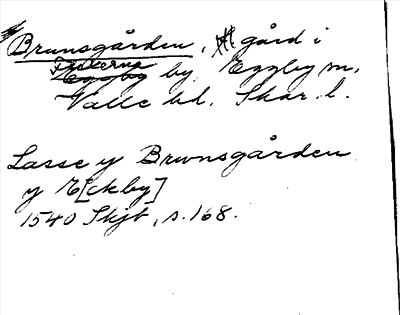 Brunsgården, gård i
Eggby by, Eggby sn,
Valle hd, Skar. l.
Lasse y Brwnsgården
y E[ckby]
1540 Skjb, s. 168.